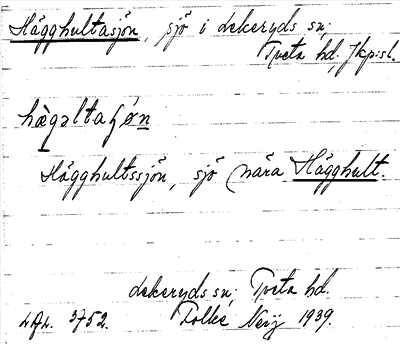 Hägghultasjön, sjö i Lekeryds sn;
Tveta hd, Jkp:sl.
hægəltaʃøn
Hägghultssjön, sjö nära Hägghult.
Lekeryds sn; Tveta hd.
LAL. 3752. Folke Neij 1939.